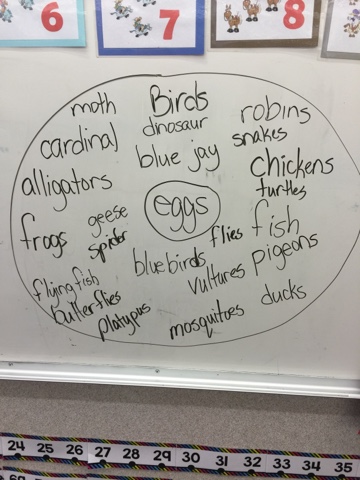 6
7
8
moth
Birds
robins
cardinal
dinosaur
snakes
blue jay
chickens
alligators
turtles
eggs
geese
frogs
spider
flies
fish
bluebirds
pigeons
flying fish
vultures
butterflies
ducks
platypus
mosquitoes
24 25 26 27 28 29 30 31 32 33 34 35